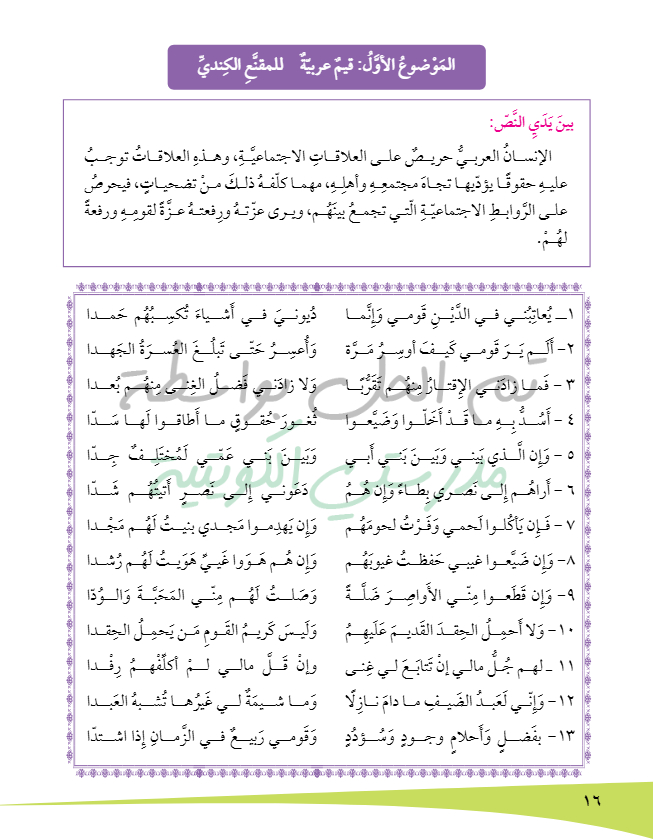 المَوْضوعُ الأوَّلُ: قيمٌ عربيّةٌ للمقنَّعِ الكِنديِّ
بينَ يَدَيِ النَّصّ:
الإنسانُ العربيُّ حريصٌ على العلاقاتِ الاجتماعيَّةِ، وهذهِ العلاقاتُ توجبُ
عليهِ حقوقًا يؤدّيها تجاهَ مجتمعِهِ وأهلِهِ، مهما كلّفهُ ذلكَ منْ تضحياتٍ، فيحرصُ
على الرَّوابطِ الاجتماعيّةِ الّتي تجمعُ بينَهُم، ويرى عزّتهُ ورِفعتهُ عزَّةً لقومِهِ ورفعةً
لهُمْ.
١ـ يُعاتِبُني في الدَّيْنِ قَومي وَإِنَّما دُيونيَ في أَشياءَ تُكسِبُهُم حَمدا
٢- أَلَم يَرَ قَومي كَيفَ أوسِرُ مَرَّة وَأُعسِرُ حَتّى تَبلُغَ العُسرَةُ الجَهدا
٣ - فَما زادَني الإقتارُ مِنهُم تَقَرُّبًا وَلا زادَني فَضلُ الغِنى مِنهُم بُعدا
٤ - أَسُدُّ بِهِ ما قَدْ أَخَلّوا وَضَيَّعوا ثُغورَ حُقوقٍ ما أَطاقوا لَها سَدّا
٥ - وَإِن الَّذي بَيني وَبَينَ بَني أَبي وَبَينَ بَني عَمّي لَمُختَلِفٌ جِدّا
٦ - أَراهُم إِلى نَصْري بِطاءً وَإِن هُمُ دَعَوني إِلى نَصرٍ أَتيتُهُم شَدّا
٧ - فَإِن يَأكُلوا لَحمي وَفَرْتُ لحومَهُم وَإِن يَهدِموا مَجدي بنيتُ لَهُم مَجْدا
٨- وَإِن ضَيَّعوا غيبي حَفظتُ غيوبَهُم وَإِن هُم هَوَوا غَييِّ هَوَيتُ لَهُم رُشدا
٩- وَإِن قَطَعوا مِنّي الأَواصِرَ ضَلَّةً وَصَلتُ لَهُم مِنّي المَحَبَّةَ وَالوُدّا
١٠- وَلا أَحمِلُ الحِقدَ القَديمَ عَلَيهِمُ وَلَيسَ كَريمُ القَومِ مَن يَحمِلُ الحِقدا
١١ ـ لهم جُلُّ مالي إنْ تَتابَعَ لي غِنى وإنْ قَلَّ مالي لمْ أكلّفْهمُ رِفْدا
١٢- وَإِنّي لَعَبدُ الضَيفِ ما دامَ نازِلًا وَما شيمَةٌ لي غَيرُها تُشبهُ العَبدا
١٣- بفَضلٍ وَأَحلامٍ وجودٍ وَسُؤدُدٍ وَقَومي رَبيعٌ في الزَّمانِ إِذا اشتدّا
تم الحل بواسطة
مدرستي الكويتية
١٦